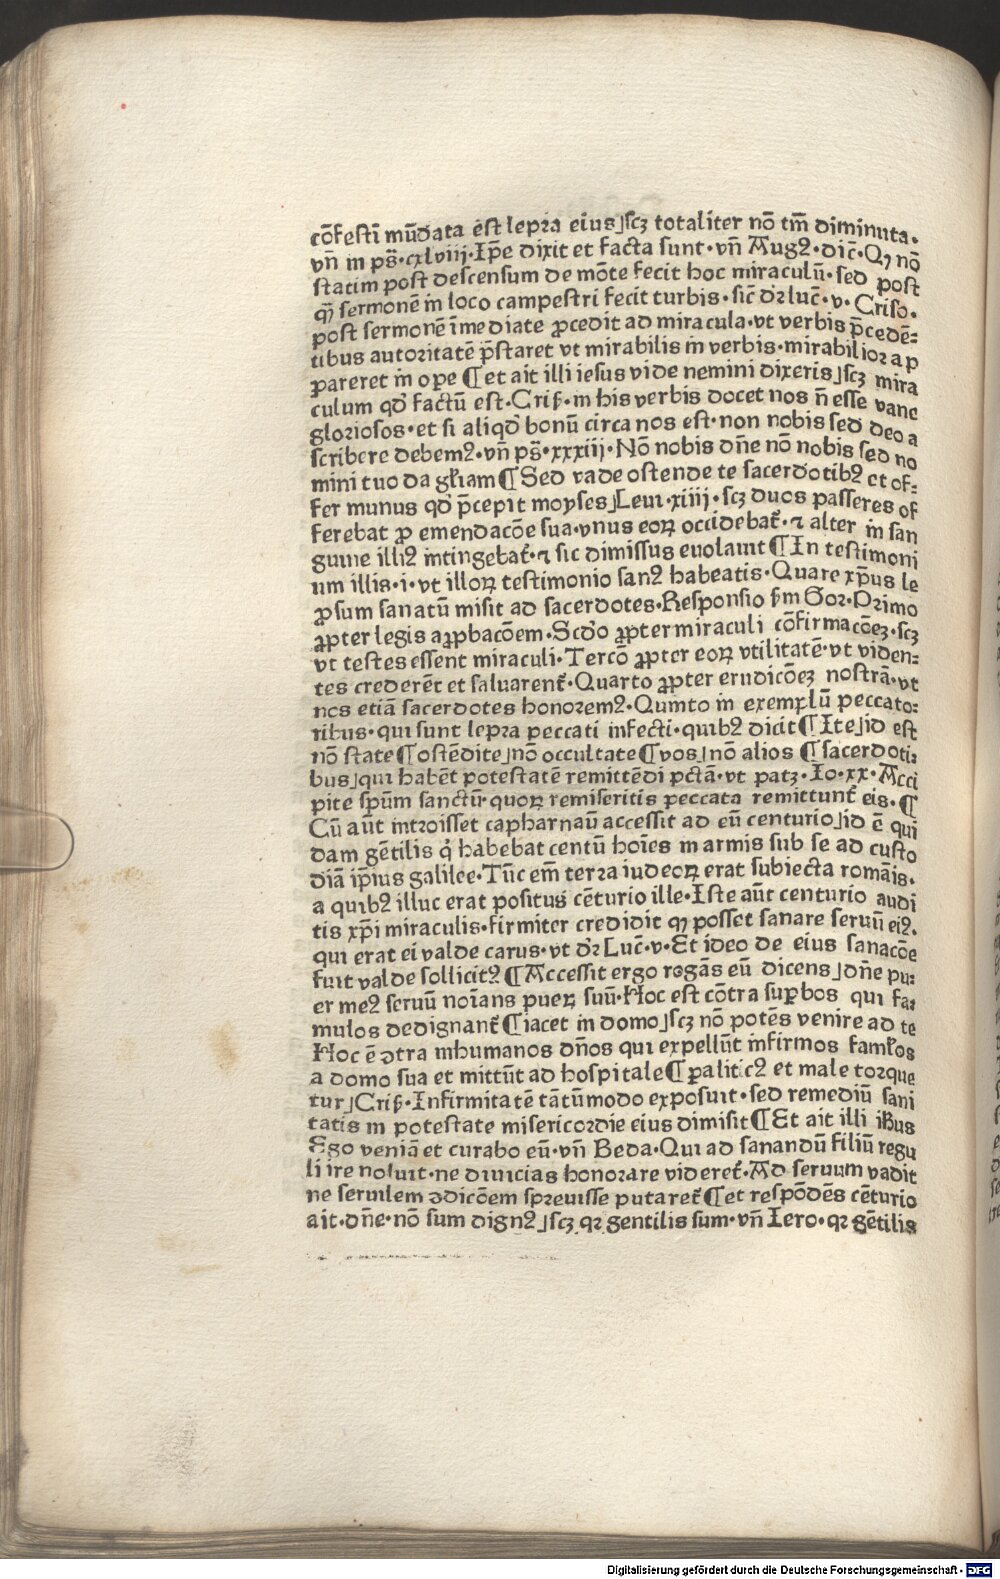 cōfesti mūdata est lepra eius⌋scꝫ totaliter nō tm̄ diminuta.
vn̄ in ps̄·cxlviij·Ip̄e dixit et facta sunt·vn̄ Augꝰ·dic̄·Qꝫ nō
statim post descensum de mōte fecit hoc miraculū·sed post
qm̄ sermonē in loco campestri fecit turbis·sic̄ dr̄ luc̄·v·Criso.
post sermonē īmediate ꝓcedit ad miracula·vt verbis p̄cedē⸗
tibus autoritatē p̄staret vt mirabilis in verbis·mirabilior ap
pareret in oꝑe ¶ et ait illi iesus vide nemini dixeris⌋scꝫ mira
culum qd̄ factū est·Cris̄·in his verbis docet nos n̄ esse vane
gloriosos·et si aliqd̄ bonū circa nos est·non nobis sed deo a
scribere debemꝰ·vn̄ ps̄·xxxiij·Nō nobis dn̄e nō nobis sed no
mini tuo da gl̄iam ¶ Sed vade ostende te sacerdotibꝰ et of⸗
fer munus qd̄ p̄cepit moyses⌋Leui·xiiij·scꝫ duos passeres of
ferebat ꝓ emendacōe sua·vnus eoꝝ occidebat̄·⁊ alter in san
guine illiꝰ intingebat̄·⁊ sic dimissus euolauit ¶ In testimoni
um illis·i·vt illoꝝ testimonio sanꝰ habeatis·Quare xp̄us le
ꝓsum sanatū misit ad sacerdotes·Responsio s̄m Gor·Primo
ꝓpter legis aꝓbacōem·Scd̄o ꝓpter miraculi cōfirmacōeꝫ·scꝫ
vt testes essent miraculi·Tercō ꝓpter eoꝝ vtilitatē·vt viden⸗
tes crederēt et saluarent̄·Quarto ꝓpter erudicōeꝫ nostrā·vt
nos etiā sacerdotes honoremꝰ·Quinto in exemplū peccato⸗
ribus·qui sunt lepra peccati infecti·quibꝰ dicit ¶ Ite⌋id est
nō state ¶ ostēdite⌋nō occultate ¶ vos⌋nō alios ¶ sacerdoti⸗
bus⌋qui habēt potestatē remittēdi pctā·vt patꝫ·Io·xx·Acci
pite sp̄um sanctū·quoꝝ remiseritis peccata remittunt̄ eis·¶
Cū aūt introisset capharnaū accessit ad eū centurio⌋id ē qui
dam gētilis q̇ habebat centū hoīes in armis sub se ad custo
diā ip̄ius galilee·Tūc em̄ terra iudeoꝝ erat subiecta romāis.
a quibꝰ illuc erat positus cēturio ille·Iste aūt centurio audi
tis xp̄i miraculis·firmiter credidit qꝫ posset sanare seruū eiꝰ.
qui erat ei valde carus·vt dr̄ Luc̄·v·Et ideo de eius sanacōe
fuit valde sollicitꝰ ¶ Accessit ergo rogās eū dicens⌋dn̄e pu⸗
er meꝰ seruū noīans pueꝝ suū·Hoc est cōtra suꝑbos qui fa⸗
mulos dedignant̄ ¶ iacet in domo⌋scꝫ nō potēs venire ad te
Hoc ē ↄtra inhumanos dn̄os qui expellūt infirmos faml̄os
a domo sua et mittūt ad hospitale ¶ paliticꝰ et male torque
tur⌋Cris̄·Infirmitatē tātūmodo exposuit·sed remediū sani
tatis in potestate misericordie eius dimisit ¶ Et ait illi ih̄us
Ego veniā et curabo eū·vn̄ Beda·Qui ad sanandū filiū regu
li ire noluit·ne diuicias honorare videret̄·Ad seruum vadit
ne seruilem ↄdicōem spreuisse putaret̄ ¶ et respōdēs cēturio
ait·dn̄e·nō sum dignꝰ⌋scꝫ qꝛ gentilis sum·vn̄ Iero·qꝛ gētilis
Digitalisierung gefördert durch die Deutsche Forschungsgemeinschaft - DFG